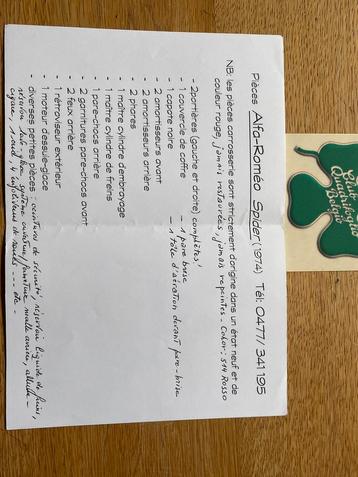 Pièces Alfa-Roméo Spider (1974) Tél: 0477/341195
NB: les pièces carrosserie sont strictement d'origine dans un état neuf et de
couleur rouge, jamais restaurées, jamais repeintes - Color: 514 Rosso
- 2portières (gauche et droite) complètes!
- couvercle de coffre - 1 pare brise
- 1 capote noire - 1 tôle d'aération devant pare-brise
- 2 amortisseurs avant
- 2 amortisseurs arrière
- 2 phares
- 1 maître cylindre d'embrayage
- 1 maître cylindre de freins
- 1 pare-chocs arrière
- 2 garnitures pare-chocs avant
- 2 feux arrière
- 1 rétroviseur extérieur
- 1 moteur d'essuie-glace
- diverses petites pièces: ceintures de sécurité, réservoir liquide de freins,
réservoir lave-glace, système ouverture, fermeture malle arrière, allume-
cigare, 1 rond 4 de roues --- etc -
Club
Quadrifoglio
Belgio